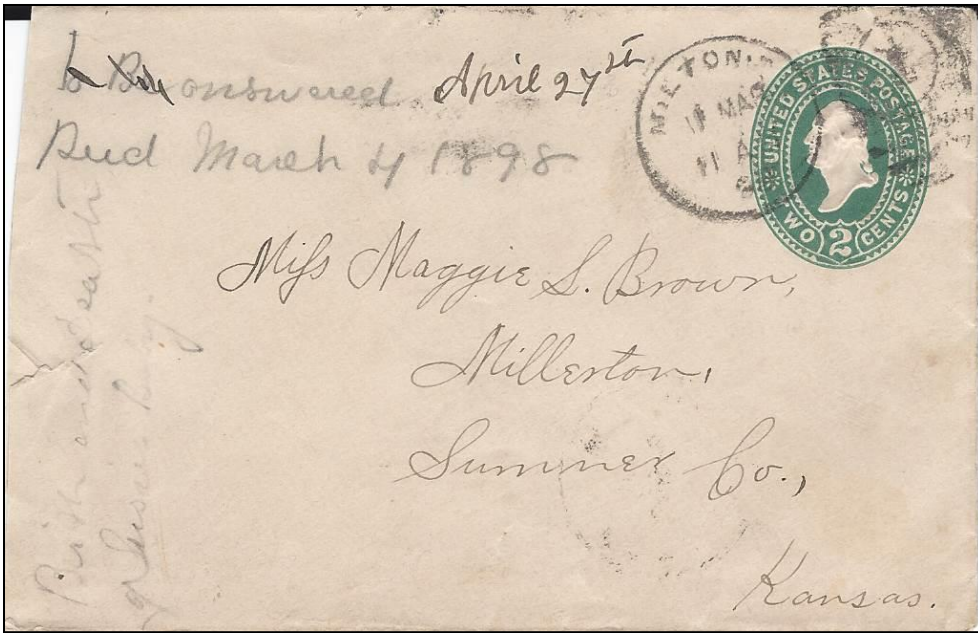 answered April 27th
Recd March 4 1898
MILTON
11 MAR
11 A
UNITED STATES POSTAGE
TWO 2 CENTS
Miss Maggie S. Brown,
Millerton,
Sumner Co.,
Kansas.
Birth and death
of Susie